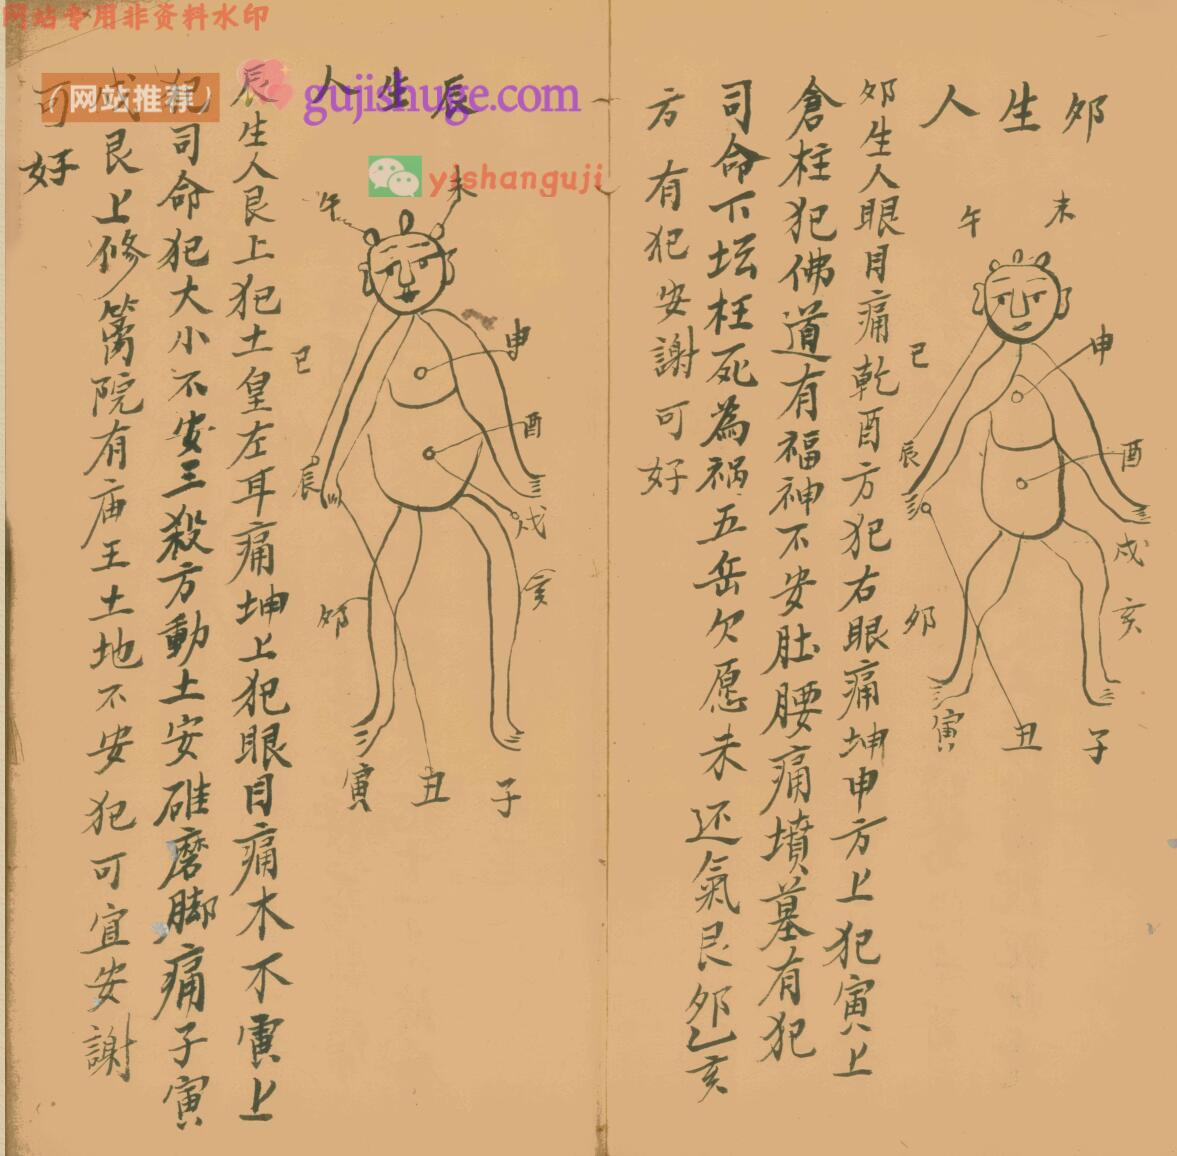 网站专用非资料水印
(网站推荐)
gujishuge.com
yishanguji
夘生人
未
午
巳
申
辰
酉
戌
夘
亥
寅
丑
子
夘生人眼目痛乾酉方犯右眼痛坤申方上犯寅上
倉柱犯佛道有福神不安肚腰痛墳墓有犯
司命下坛枉死為祸五岳欠愿未还氣艮夘乙亥
方有犯安謝可好
辰生人
未
午
巳
申
酉
辰
戌
亥
夘
寅
丑
子
辰生人艮上犯土皇左耳痛坤上犯眼目痛木不寅上
犯司命犯大小不安三殺方動土安碓磨脚痛子寅
戌艮上修篱院有庙王土地不安犯可宜安謝
可好